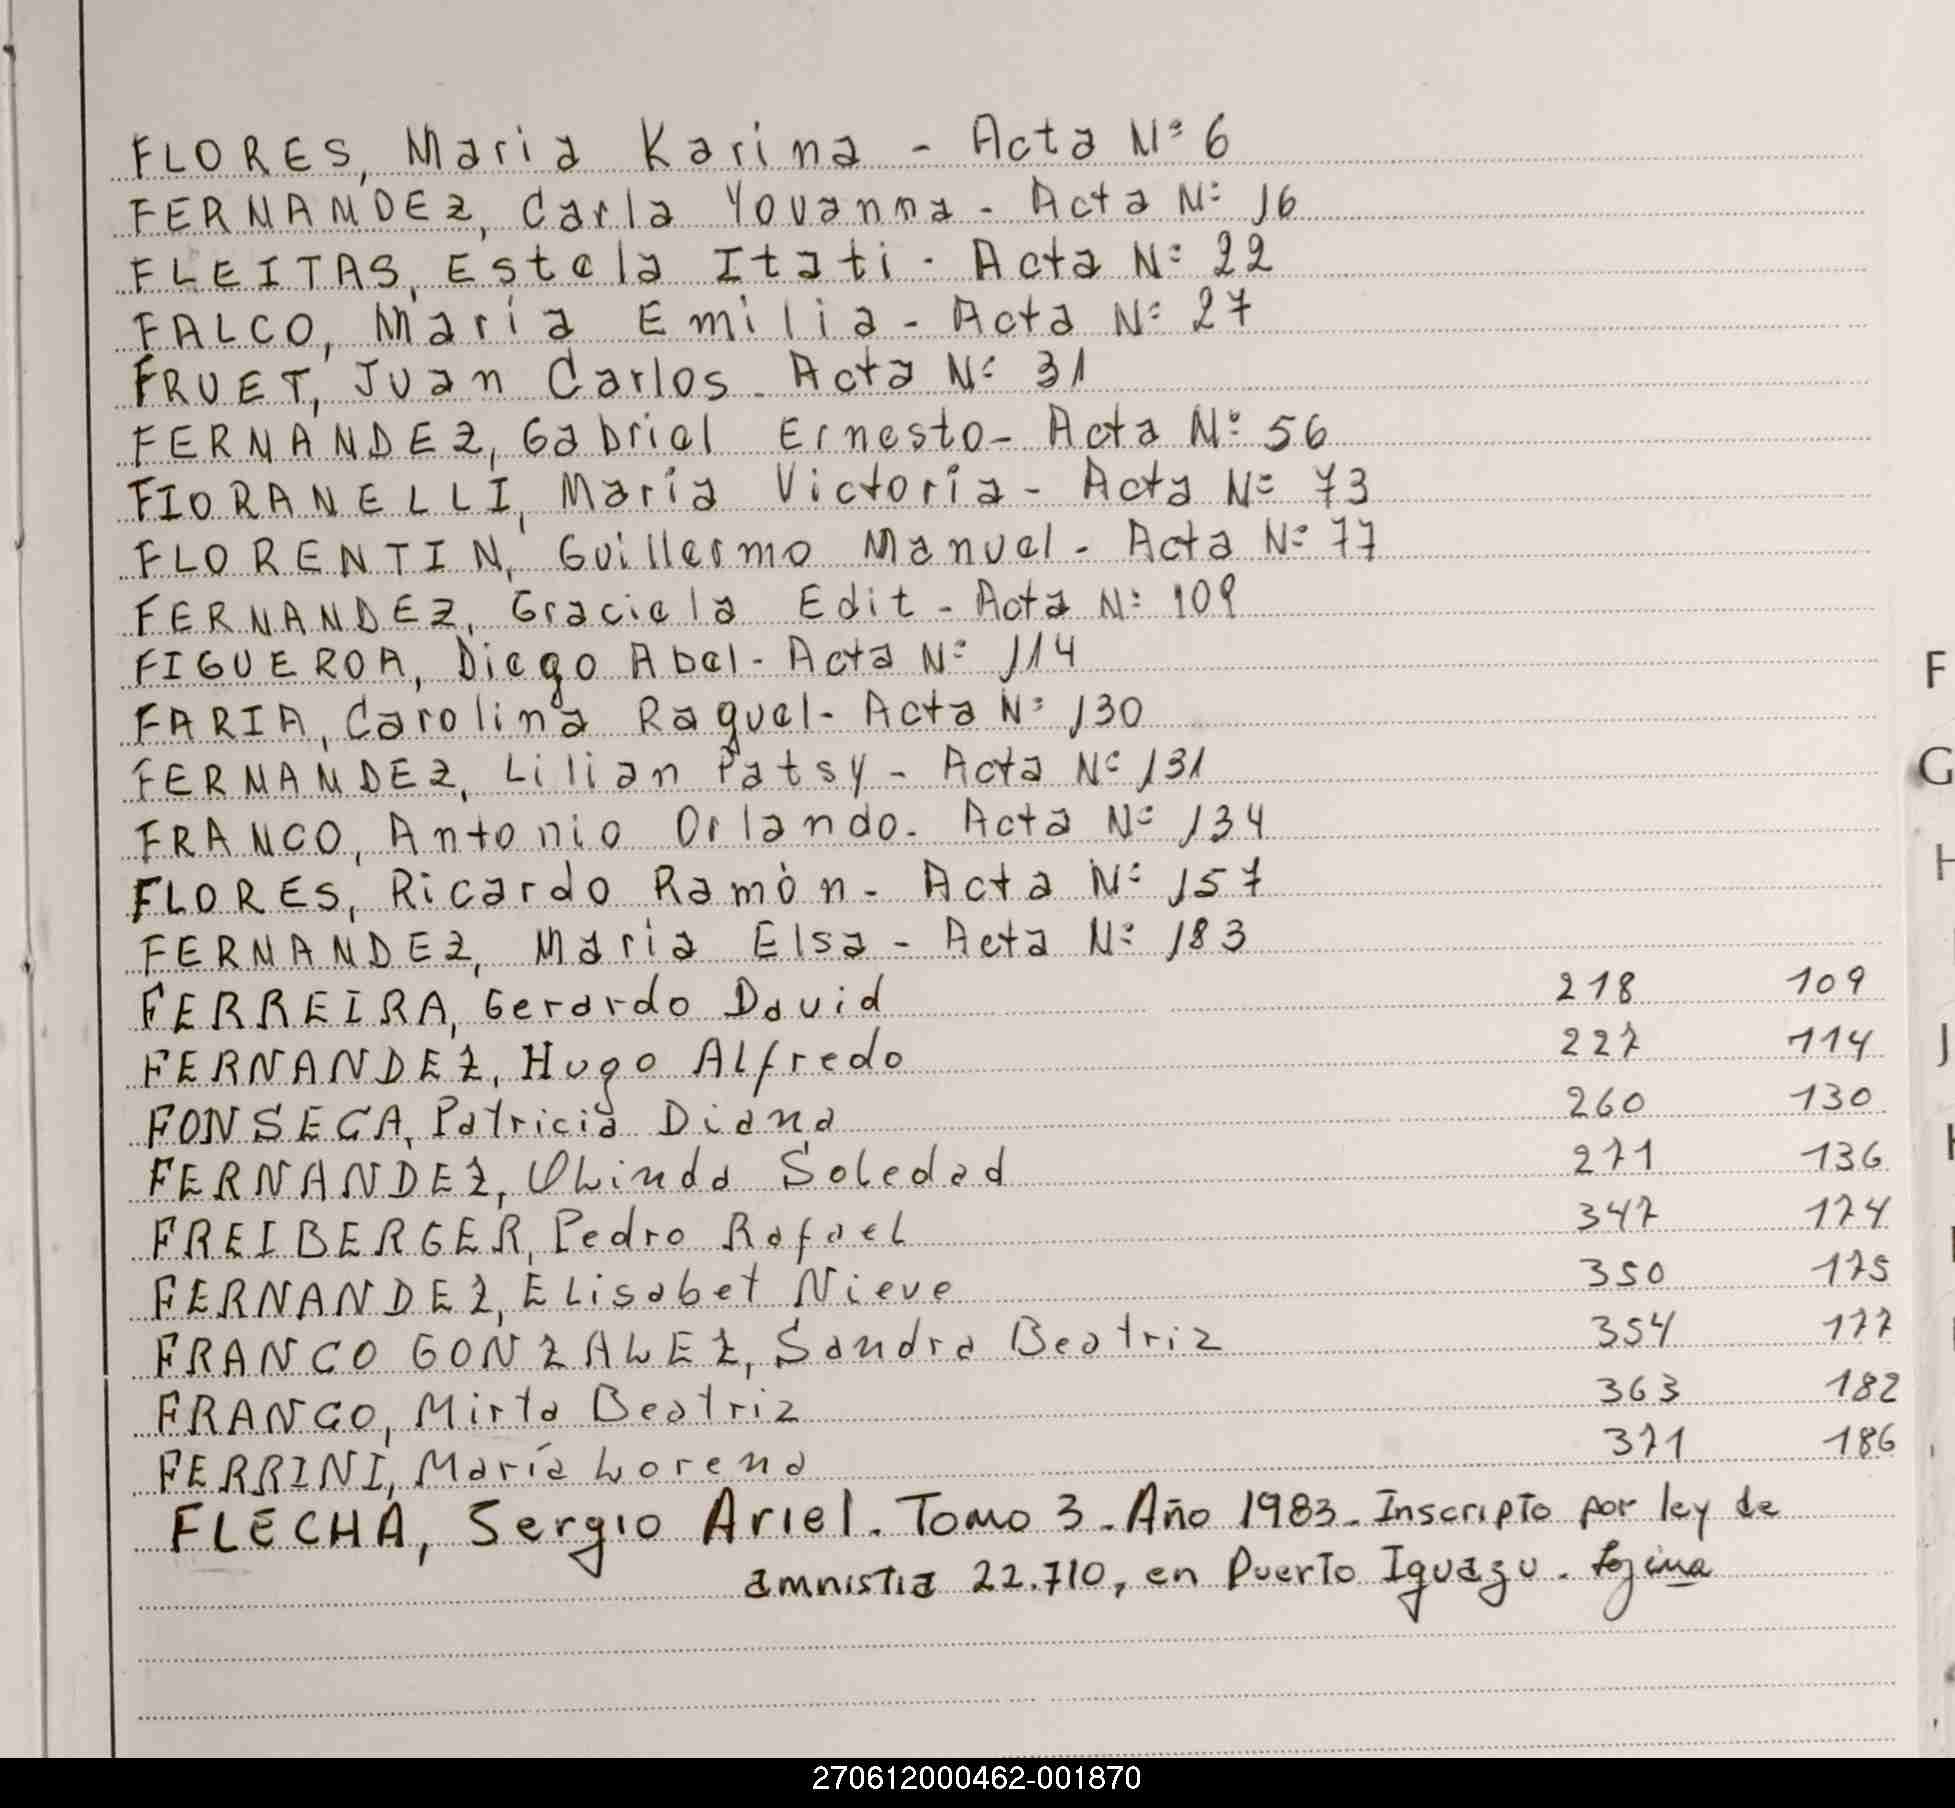 FLORES, Maria Karina - Acta Nº 6
FERNANDEZ, Carla Yovanna - Acta Nº 16
FLEITAS, Estela Itati - Acta Nº 22
FALCO, María Emilia - Acta Nº 27
FRUET, Juan Carlos - Acta Nº 31
FERNANDEZ, Gabriel Ernesto - Acta Nº 56
FIORANELLI, María Victoria - Acta Nº 73
FLORENTIN, Guillermo Manuel - Acta Nº 77
FERNANDEZ, Graciela Edit - Acta Nº 109
FIGUEROA, Diego Abel - Acta Nº 114
FARIA, Carolina Raquel - Acta Nº 130
FERNANDEZ, Lilian Patsy - Acta Nº 131
FRANCO, Antonio Orlando - Acta Nº 134
FLORES, Ricardo Ramón - Acta Nº 157
FERNANDEZ, Maria Elsa - Acta Nº 183
FERREIRA, Gerardo David 218 109
FERNANDEZ, Hugo Alfredo 227 114
FONSECA, Patricia Diana 260 130
FERNANDEZ, Olinda Soledad 271 136
FREIBERGER, Pedro Rafael 347 174
FERNANDEZ, Elisabet Nieve 350 175
FRANCO GONZALEZ, Sandra Beatriz 354 177
FRANCO, Mirta Beatriz 363 182
FERRINI, María Lorena 371 186
FLECHA, Sergio Ariel. Tomo 3 - Año 1983 - Inscripto por ley de
amnistia 22.710, en Puerto Iguazu. Pagina
F
G
H
J
270612000462-001870